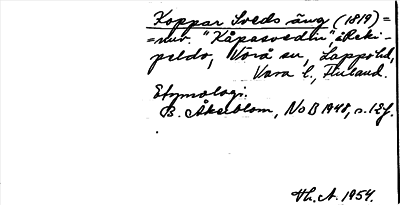 Koppar Sveds äng (1819) =
= nuv. "Kåpasvedin", i Reki-
peldo, Vörå sn, Lappfors,
Vasa l., Finland.
Etymologi:
B. Åkerblom, NoB 1948, s. 12 f.
Th. A. 1954.